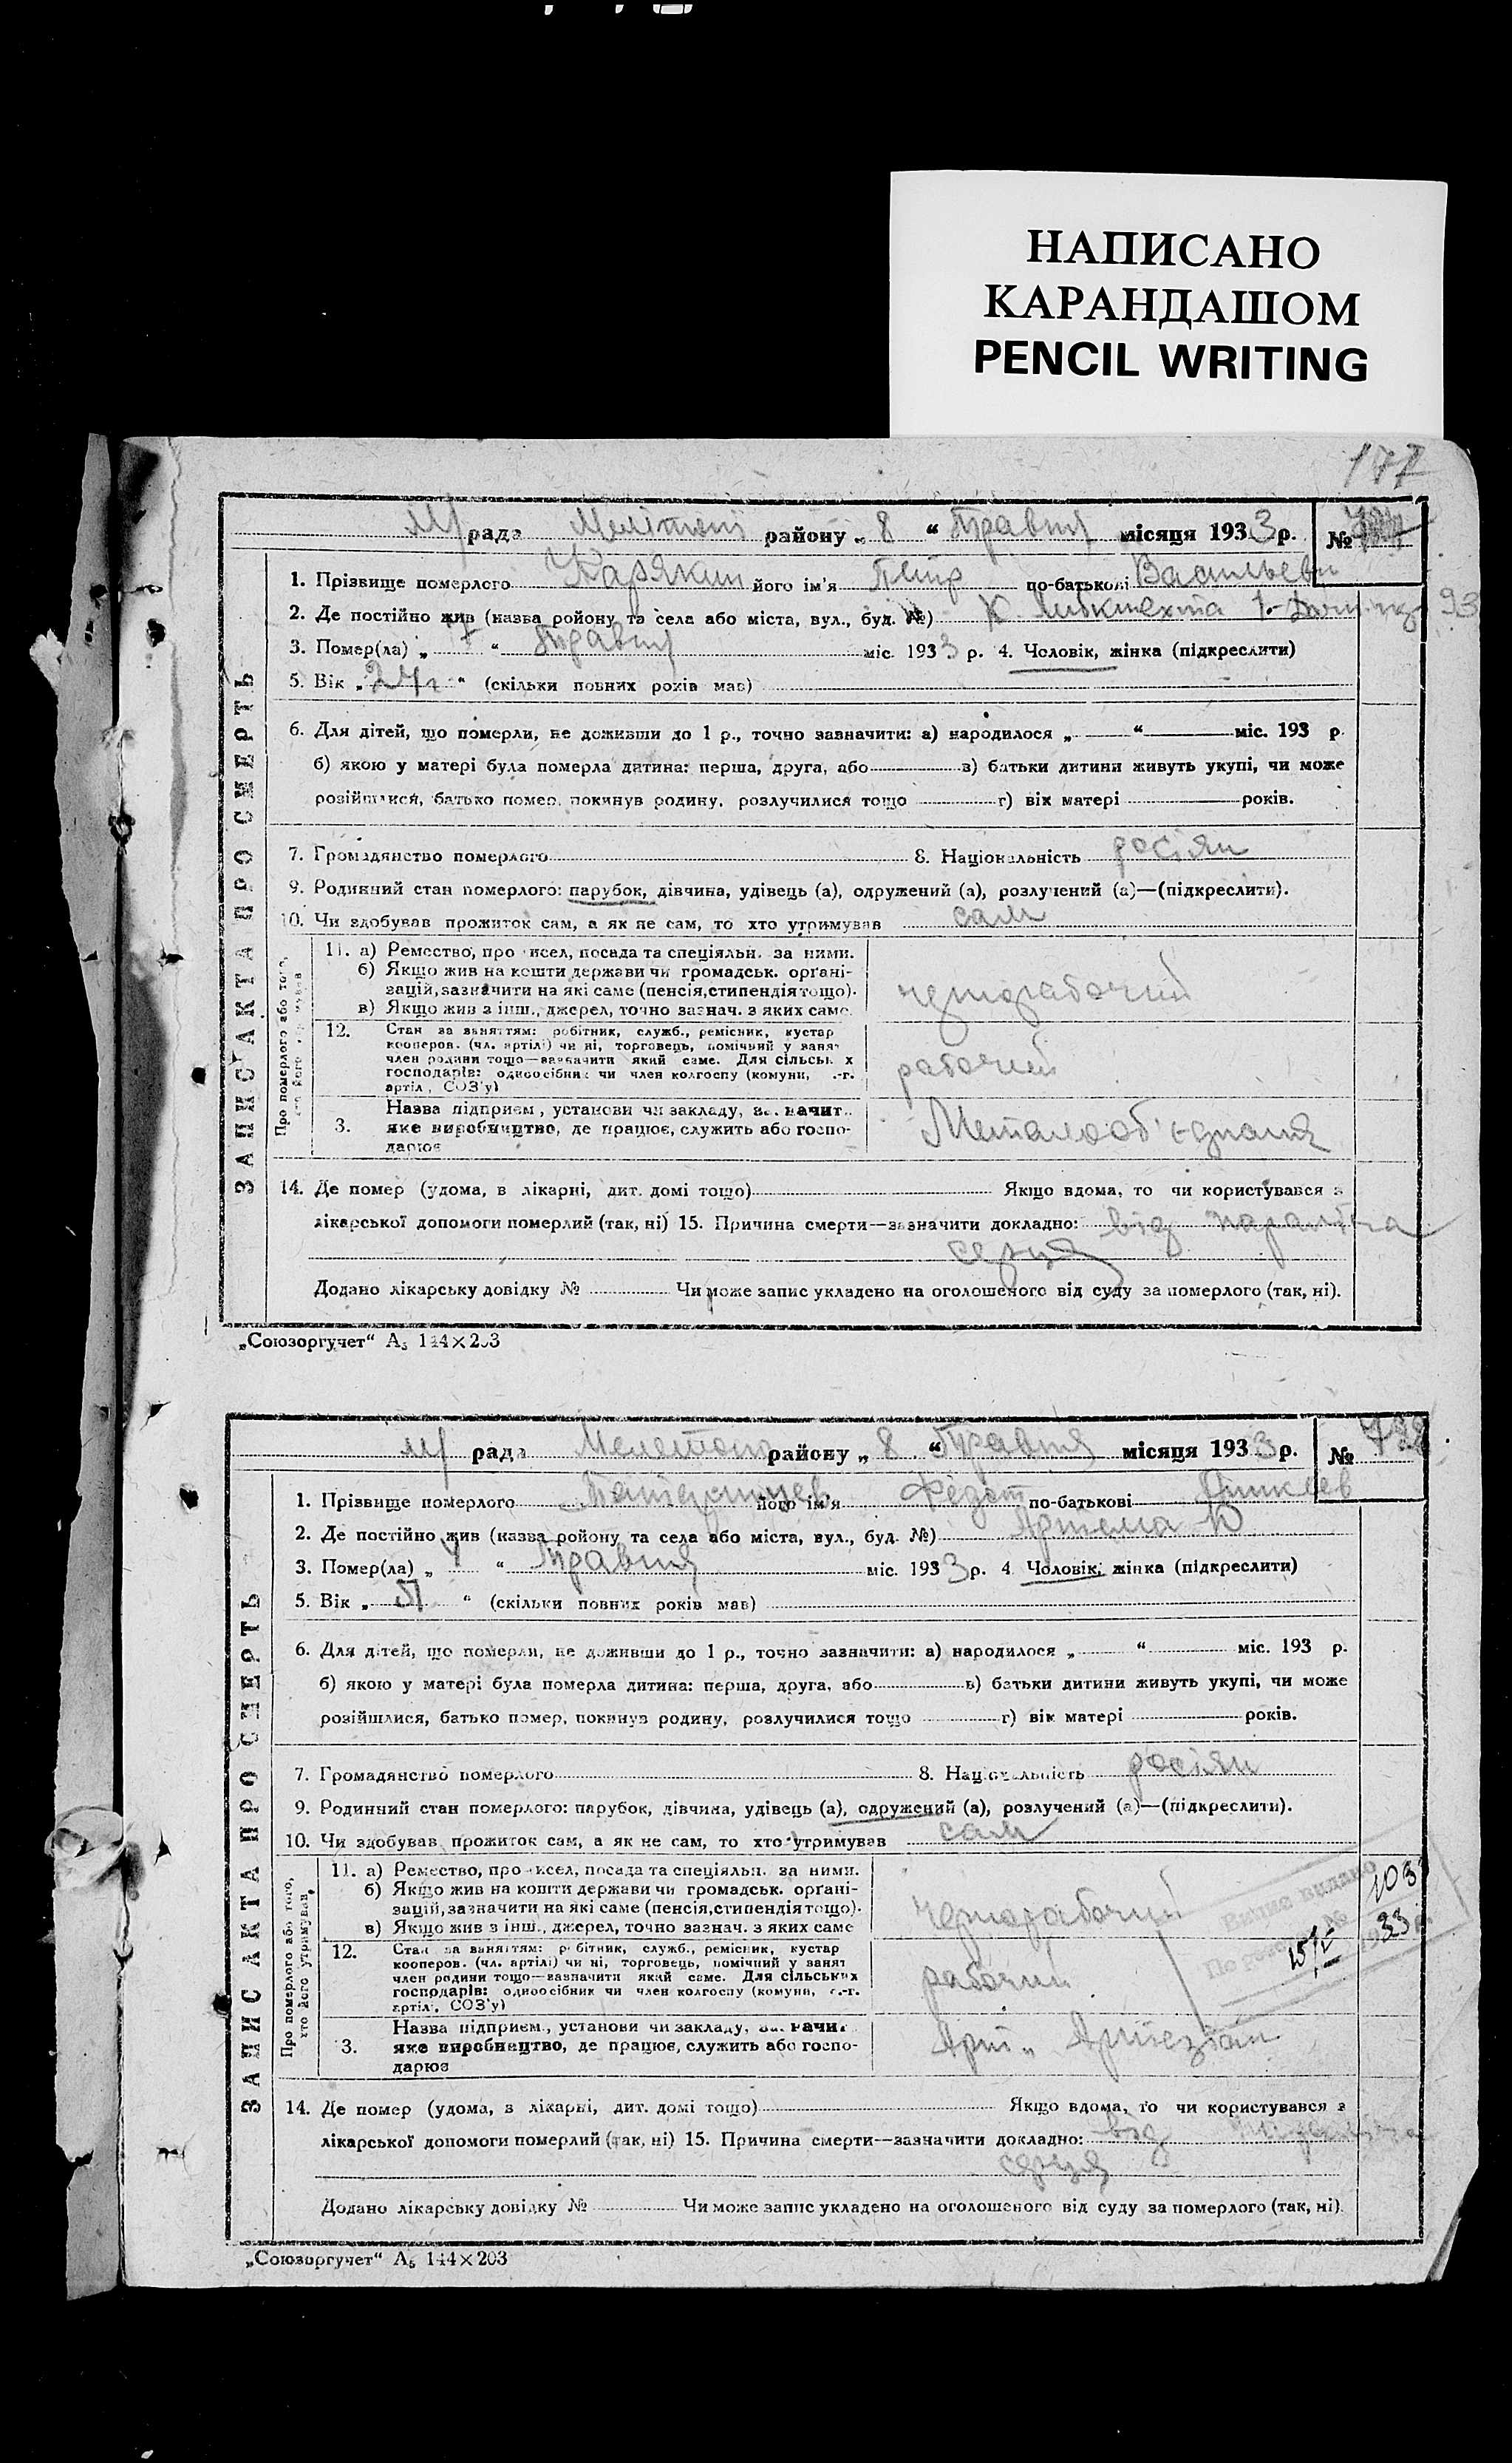 НАПИСАНО
КАРАНДАШОМ
PENCIL WRITING
177
м/рада Меліτοπ району „ 8 “ Травня місяця 1933 р. №
1. Прізвище померлого Карякин його ім’я Петр по-батькові Васильеви
2. Де постійно жив (назва району та села або міста, вул., буд. №) К. Либкнехта 93
3. Помер(ла) „ 7 “ Травня міс. 1933 р. 4. Чоловік, жінка (підкреслити)
5. Вік „ “ (скільки повних років мав)
6. Для дітей, що померли, не доживши до 1 р., точно зазначити: а) народилося „ “ міс. 193 р.
б) якою у матері була померла дитина: перша, друга, або в) батьки дитини живуть укупі, чи може
розійшлися, батько помер, покинув родину, розлучилися тощо г) вік матері років.
7. Громадянство померлого 8. Національність росіян
9. Родинний стан померлого: парубок, дівчина, удівець (а), одружений (а), розлучений (а)—(підкреслити).
10. Чи здобував прожиток сам, а як не сам, то хто утримував сам
11. а) Ремество, про исел, посада та спеціяльн. за ними.
б) Якщо жив на кошти держави чи громадськ. орґані-
зацій, зазначити на які саме (пенсія, стипендія тощо).
в) Якщо жив з інш., джерел, точно зазнач. з яких саме.
чернорабочий
12. Стан за заняттям: робітник, служб., ремісник, кустар
кооперов. (чл. артілі) чи ні, торговець, помічний у занят
член родини тощо—зазначити який саме. Для сільськ х
господарів: одноосібник чи член колгоспу (комуни, с.-г.
артіл., СОЗ’у)
рабочий
3. Назва підприєм., установи чи закладу, за. начит.
яке виробництво, де працює, служить або госпо-
дарює
Металооб’єднання
14. Де помер (удома, в лікарні, дит. домі тощо) Якщо вдома, то чи користувався з
лікарської допомоги померлий (так, ні) 15. Причина смерти—зазначити докладно: від параліча
серця
Додано лікарську довідку № Чи може запис укладено на оголошеного від суду за померлого (так, ні).
ЗАПИС АКТА ПРО СМЕРТЬ
Про померлого або того,
хто його утримував
„Союзоргучет“ А5 144×203
м/ рада Мелетопо району „ 8 “ Травня місяця 1933 р. № 728
1. Прізвище померлого його ім’я Федот по-батькові
2. Де постійно жив (назва району та села або міста, вул., буд. №) Артема 10
3. Помер(ла) „ “ Травня міс. 1933 р. 4 Чоловік, жінка (підкреслити)
5. Вік „ 51 “ (скільки повних років мав)
6. Для дітей, що померли, не доживши до 1 р., точно зазначити: а) народилося „ “ міс. 193 р.
б) якою у матері була померла дитина: перша, друга, або в) батьки дитини живуть укупі, чи може
розійшлися, батько помер, покинув родину, розлучилися тощо г) вік матері років.
7. Громадянство померлого 8. Національність росіян
9. Родинний стан померлого: парубок, дівчина, удівець (а), одружений (а), розлучений (а)—(підкреслити).
10. Чи здобував прожиток сам, а як не сам, то хто утримував сам
11. а) Ремество, про исел, посада та спеціяльн. за ними.
б) Якщо жив на кошти держави чи громадськ. орґані-
зацій, зазначити на які саме (пенсія, стипендія тощо).
в) Якщо жив з інш., джерел, точно зазнач. з яких саме
чернорабочий
103
15/V 33
12. Стан за заняттям: р бітник, служб., ремісник, кустар
кооперов. (чл. артілі) чи ні, торговець, помічний у занят
член родини тощо—зазначити який саме. Для сільських
господарів: одноосібник чи член колгоспу (комуни, с.-г.
артіл., СОЗ’у)
рабочий
3. Назва підприєм., установи чи закладу, за. начит
яке виробництво, де працює, служить або госпо-
дарює
Арт. Артезіан
14. Де помер (удома, в лікарні, дит. домі тощо) Якщо вдома, то чи користувався з
лікарської допомоги померлий (так, ні) 15. Причина смерти—зазначити докладно: від
серця
Додано лікарську довідку № Чи може запис укладено на оголошеного від суду за померлого (так, ні)
ЗАПИС АКТА ПРО СМЕРТЬ
Про померлого або того,
хто його утримував,
„Союзоргучет“ А5 144×203